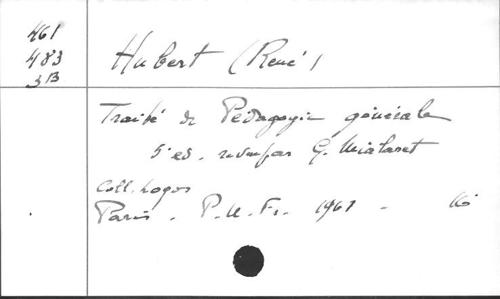 461
483
3B
Hubert (René)
Traité de Pédagogie générale
5e ed. revue par G. Mialaret
Coll. Logos
Paris. P.U.F. 1961 -